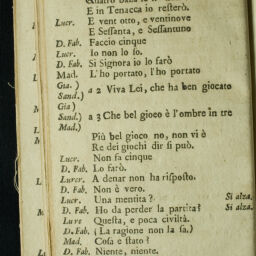 E in Tenacca io resterò.
Lucr. E vent otto, e ventinove
E Sessanta, e Sessantuno
D. Fab. Faccio cinque
Lucr. Io non lo so.
D. Fab. Si Signora io lo farò
Mad. L'ho portato, l'ho portato
Gia. )
Sand.) a 2 Viva Lei, che ha ben giocato
Gia )
Sand.) a 3 Che bel gioco è l'ombre in tre
Mad.)
Più bel gioco no, non vi è
Re dei giochi dir si può.
Lucr. Non fa cinque
D. Fab. Lo farò.
Lurcr. A denar non ha risposto.
D. Fab. Non è vero.
Lucr. Una mentita? Si alza.
D. Fab. Ho da perder la partita? Si alza.
Lure Questa, e poca civiltà.
D. Fab. (La ragione non la sa.)
Mad. Cosa e stato?
D. Fab. Niente, niente.